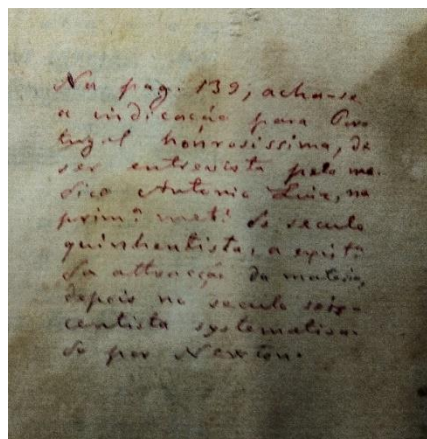 Na pag. 139, acha-se
a indicação para Por
tugal honrosissima, de
ser entrevista pelo me-
dico Antonio Luiz, na
prim.ª met.e do seculo
quinhentista, a
da attracção da materia,
depois no seculo seis-
centista systematisa-
do por Newton.